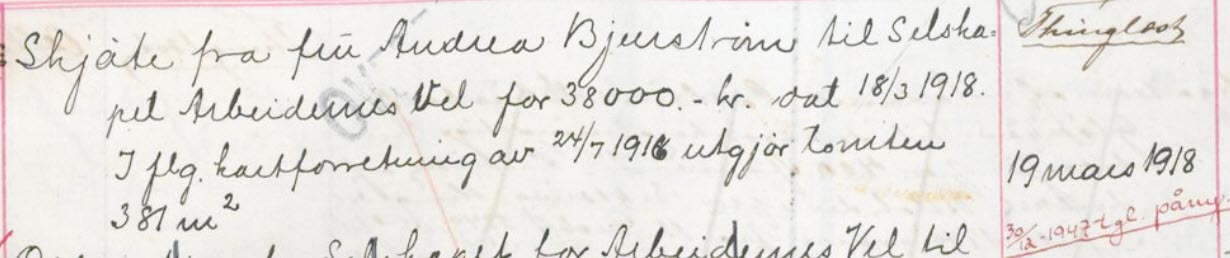 Skjöte fra frü Andrea Bjerström til Selska=
pet Arbeidernes Vel for 38000.- kr. dat 18/3 1918.
I flg. kartforretning av 24/7 1916 utgjör tomten
381 m²
Selskapet for Arbeidernes Vel til
Thinglæst
19 mars 1918
30/12-1947 tgl. påny.